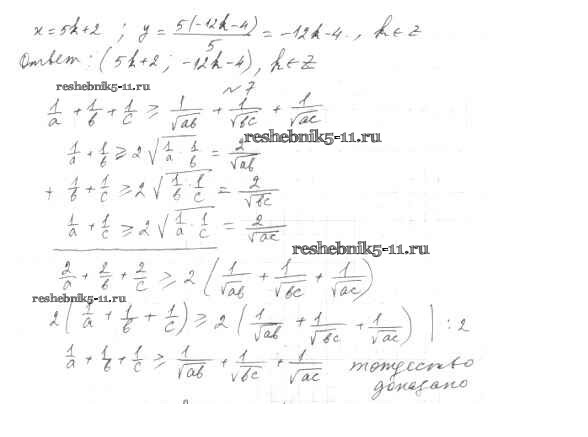 x = 5k+2 ; y = 5(-12k-4)/5 = -12k-4., k ∈ Z
Ответ: (5k+2 ; -12k-4), k ∈ Z
№7
reshebnik5-11.ru
1/a + 1/b + 1/c ≥ 1/√ab + 1/√bc + 1/√ac
reshebnik5-11.ru
1/a + 1/b ≥ 2√(1/a · 1/b) = 2/√ab
+ 1/b + 1/c ≥ 2√(1/b · 1/c) = 2/√bc
1/a + 1/c ≥ 2√(1/a · 1/c) = 2/√ac
reshebnik5-11.ru
2/a + 2/b + 2/c ≥ 2(1/√ab + 1/√bc + 1/√ac)
reshebnik5-11.ru
2(1/a + 1/b + 1/c) ≥ 2(1/√ab + 1/√bc + 1/√ac) | : 2
1/a + 1/b + 1/c ≥ 1/√ab + 1/√bc + 1/√ac тождество
доказано